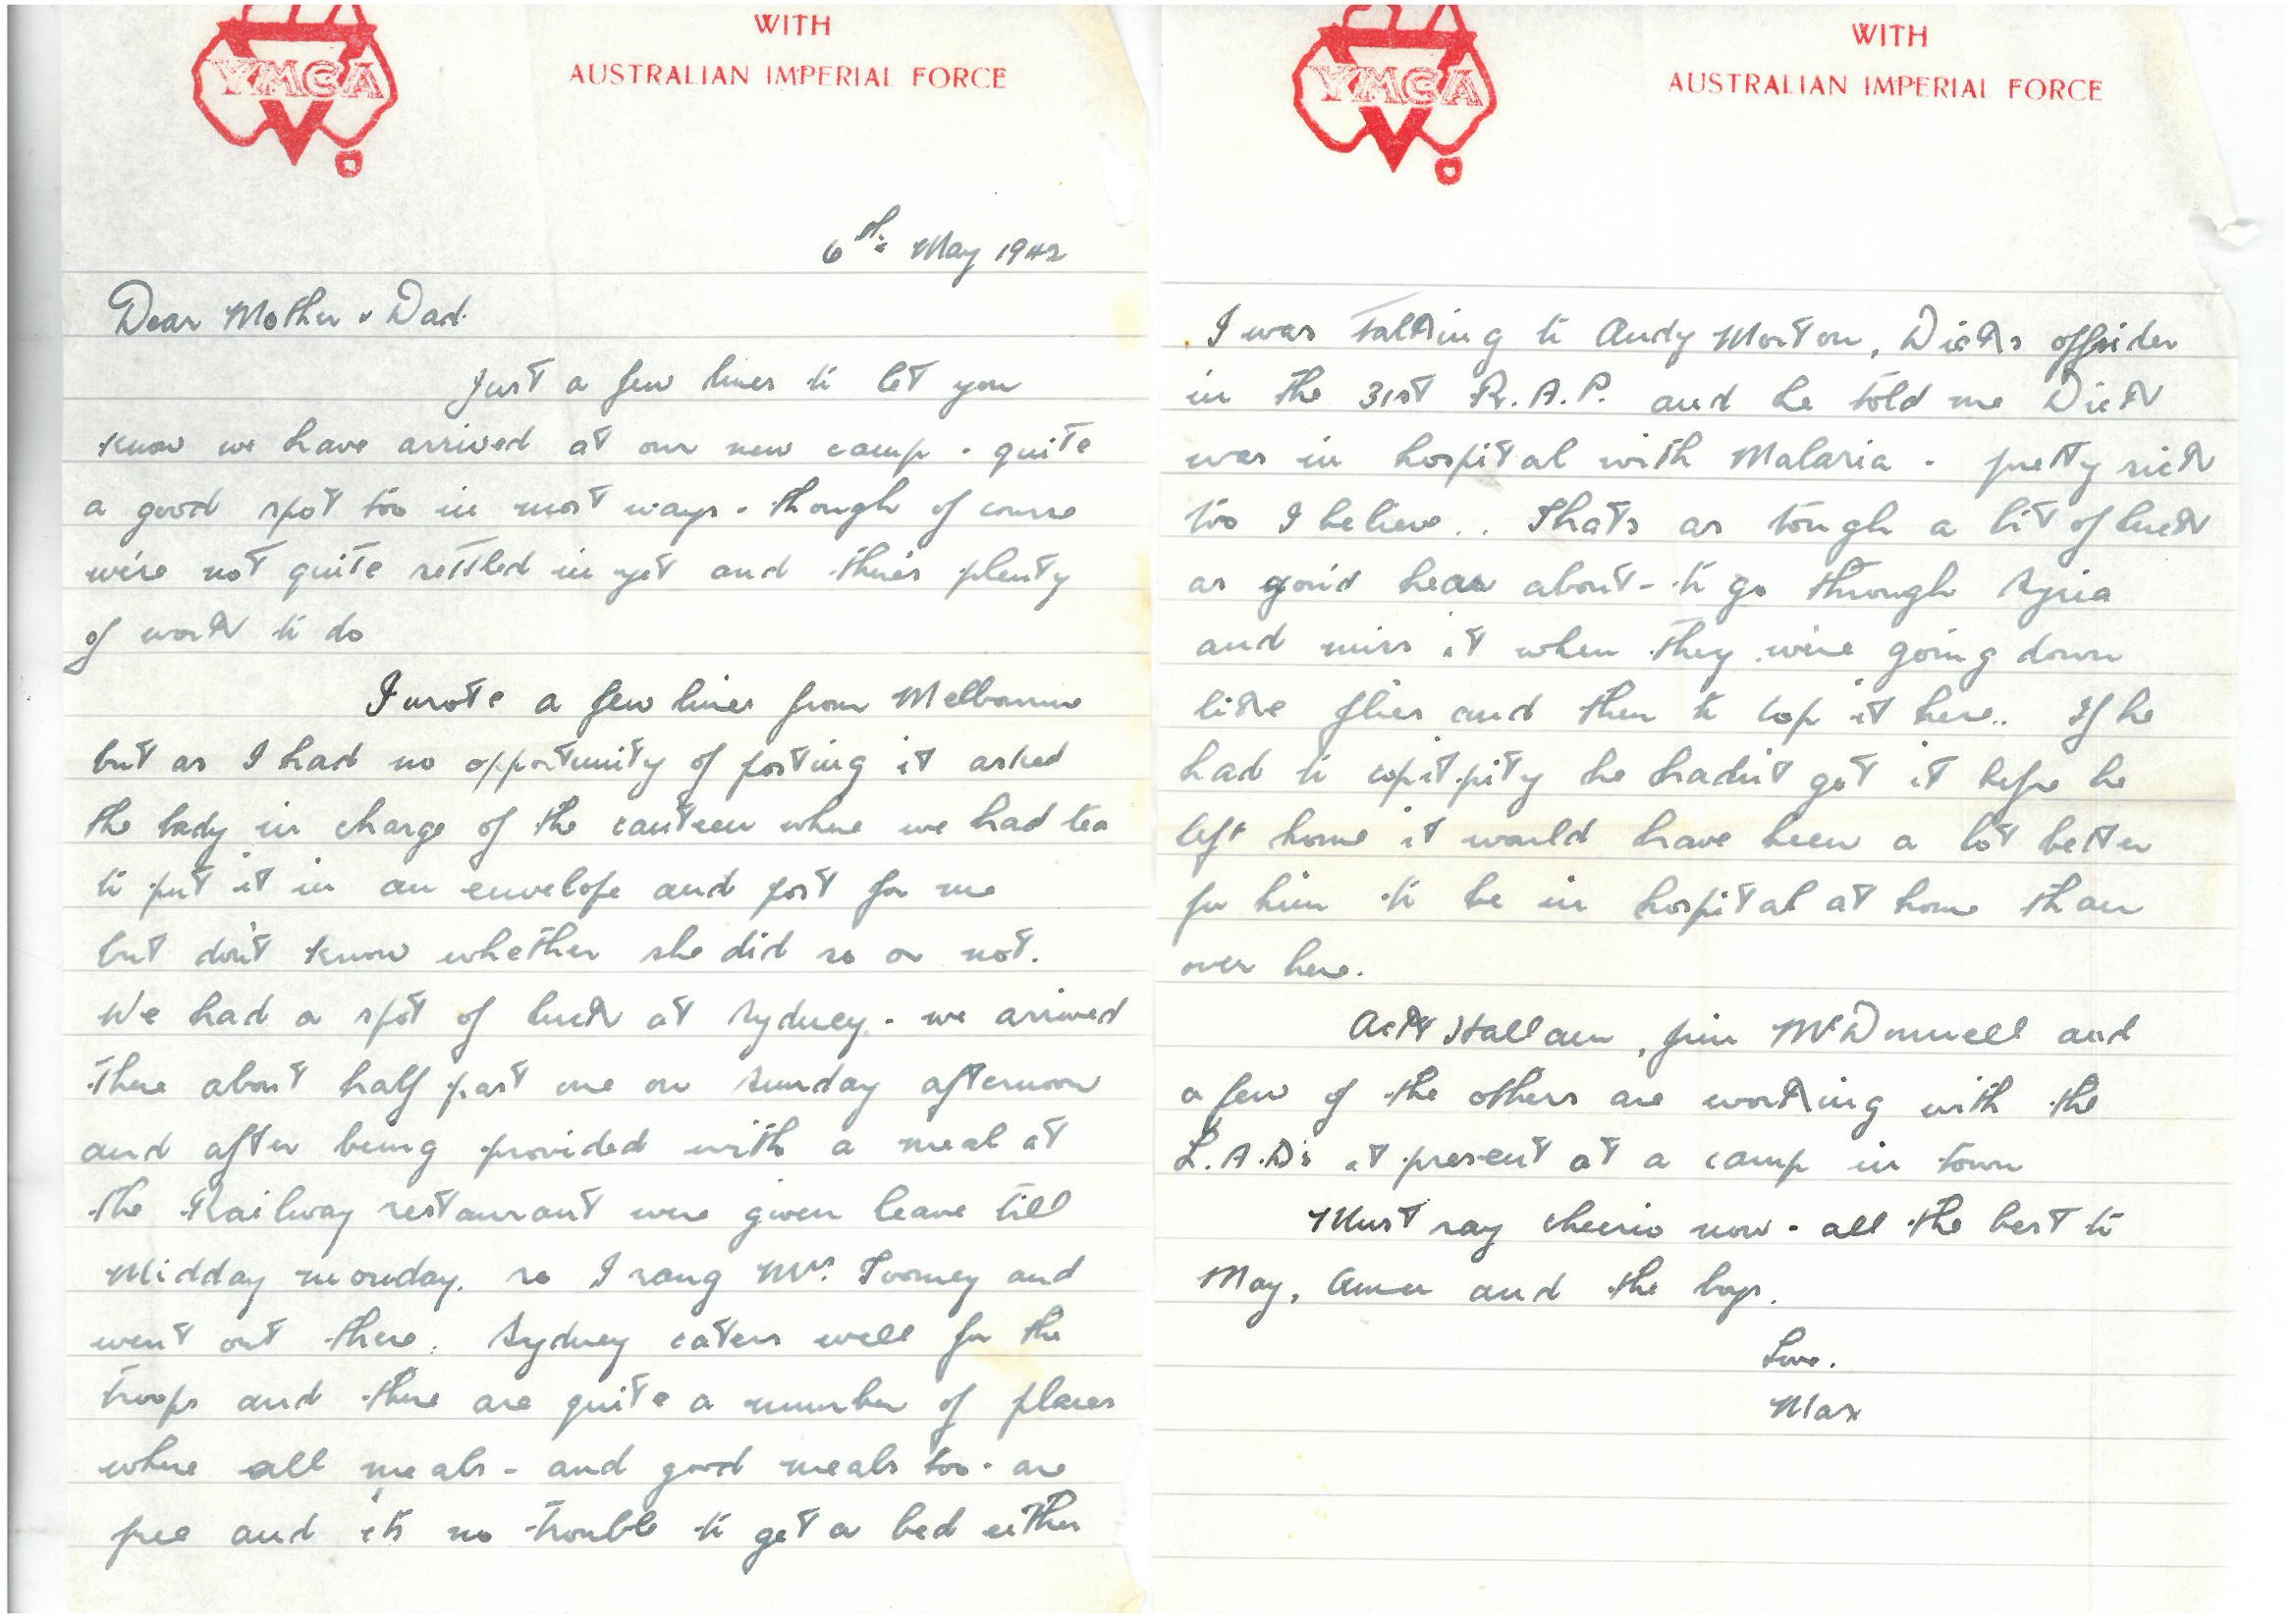 YMCA
WITH
AUSTRALIAN IMPERIAL FORCE
6th May 1942
Dear Mother & Dad.
Just a few lines to let you
know we have arrived at our new camp - quite
a good spot too in most ways - though of course
we're not quite settled in yet and there's plenty
of work to do
I wrote a few lines from Melbourne
but as I had no opportunity of posting it asked
the lady in charge of the canteen where we had tea
to put it in an envelope and post for me
but don't know whether she did so or not.
We had a spot of luck at Sydney - we arrived
there about half past one on Sunday afternoon
and after being provided with a meal at
the Railway restaurant were given leave till
Midday monday. so I rang Mrs. Toomey and
went out there. Sydney caters well for the
troops and there are quite a number of places
where all meals - and good meals too - are
free and its no trouble to get a bed either
YMCA
WITH
AUSTRALIAN IMPERIAL FORCE
I was talking to Andy Morton, Dicks offsider
in the 31st R.A.P. and he told me Dick
was in hospital with Malaria - pretty sick
too I believe.. Thats as tough a bit of luck
as you'd hear about - to go through Syria
and miss it when they were going down
like flies and then to cop it here.. If he
had to cop it pity he hadn't got it before he
left home it would have been a lot better
for him to be in hospital at home than
over here.
Hallam, Jim McDonnell and
a few of the others are working with the
L.A.D's at present at a camp in town
Must say cheerio now - all the best to
May, and the boys.
Love.
Max